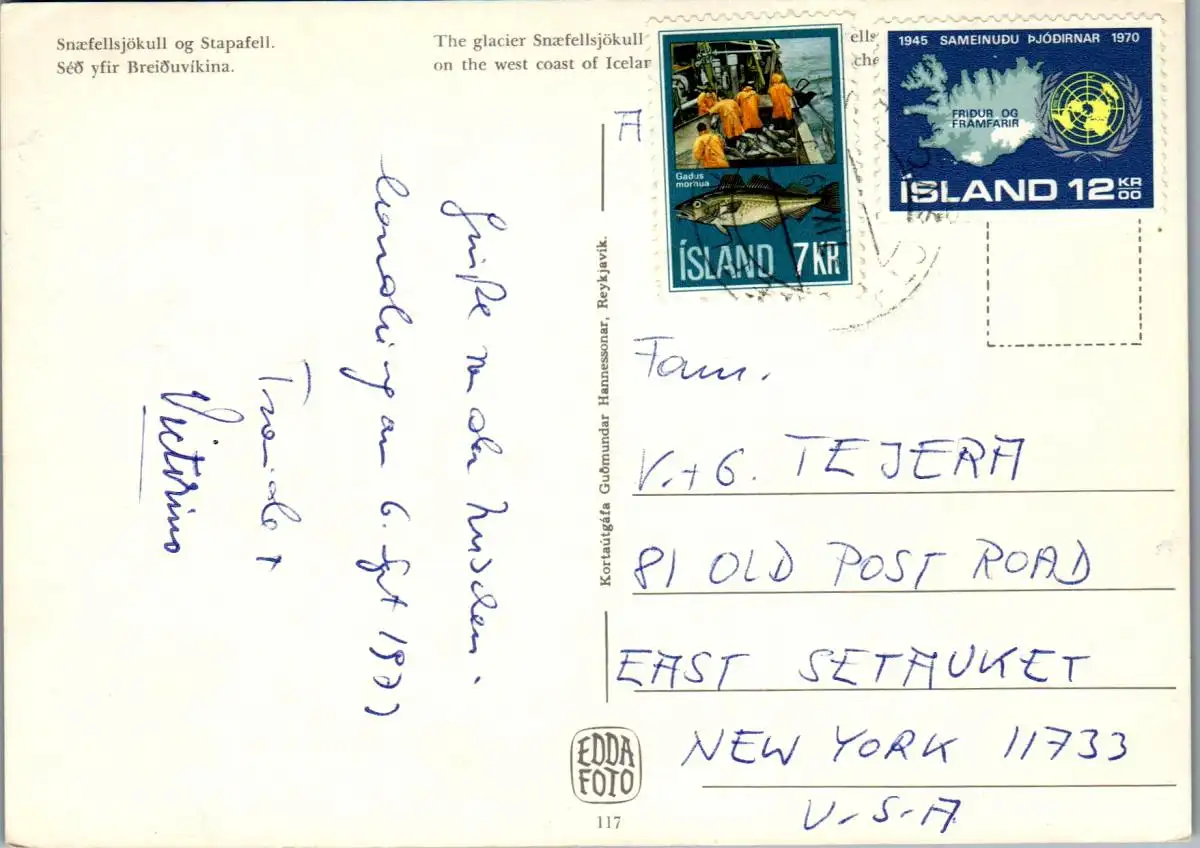 Snæfellsjökull og Stapafell.
Séð yfir Breiðuvíkina.
The glacier Snæfellsjökull
on the west coast of Icelan
Gadus
morhua
ÍSLAND 7 KR
1945 SAMEINUÐU ÞJÓÐIRNAR 1970
FRIÐUR OG
FRAMFARIR
ÍSLAND 12 KR
00
A
Grüße von der
6. Sept 197
Victorino
Kortaútgáfa Guðmundar Hannessonar, Reykjavik.
Fam.
V. + G. TEJERA
81 OLD POST ROAD
EAST SETAUKET
NEW YORK 11733
U.S.A
EDDA
FOTO
117